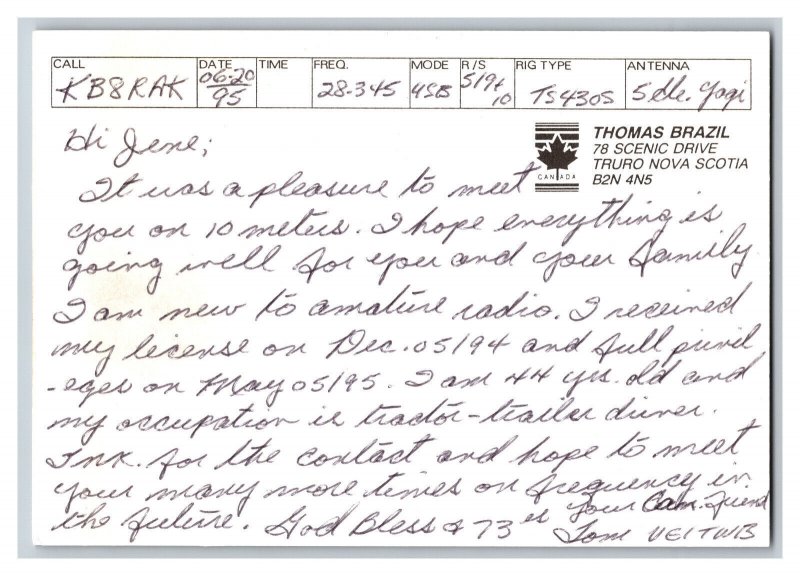 CALL DATE TIME FREQ. MODE R/S RIG TYPE ANTENNA
KB8RAK 06-20 95 28-345 USB 5/9+ 10 TS430S 5 ele. Yagi
THOMAS BRAZIL
78 SCENIC DRIVE
TRURO NOVA SCOTIA
B2N 4N5
CANADA
Hi Jene;
It was a pleasure to meet
you on 10 meters. I hope everything is
going well for you and your family
I am new to amature radio. I received
my license on Dec. 05/94 and full privil
-eges on May 05/95. I am 44 yrs. old and
my occupation is tractor-trailer driver.
Tnx. for the contact and hope to meet
your many more times on frequency in
the future. God Bless & 73 es your Can. friend
Tom VE1TWB